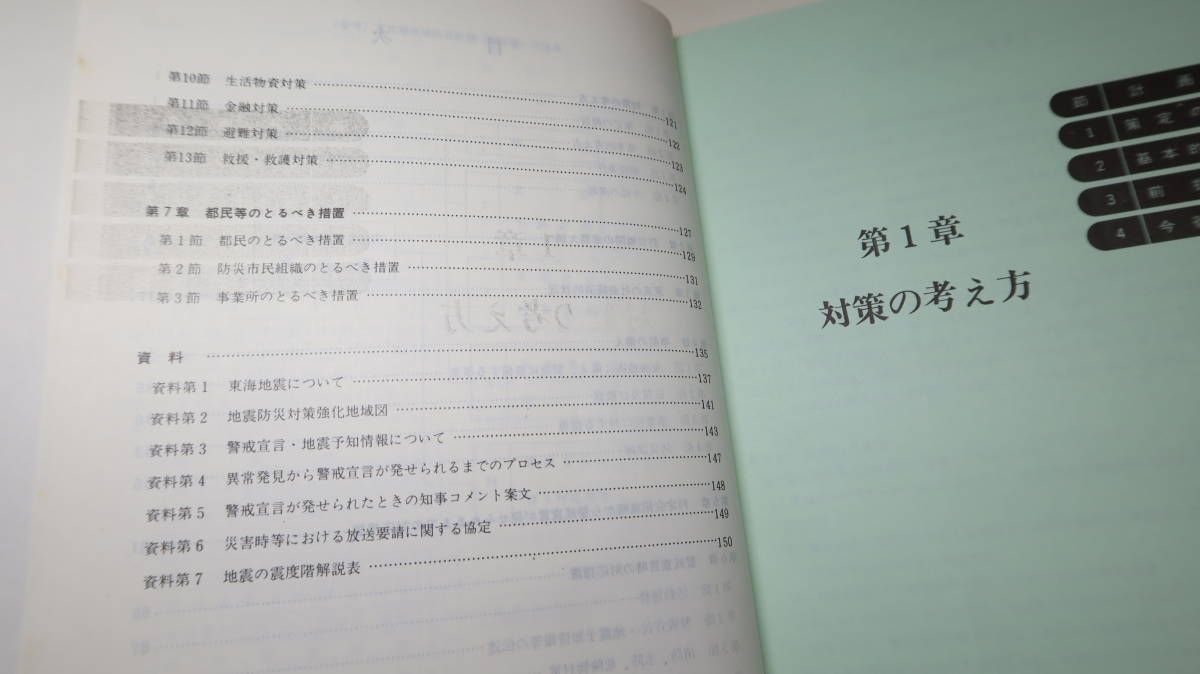 第10節 生活物資対策 ……………… 121
第11節 金融対策 ……………… 122
第12節 避難対策 ……………… 123
第13節 救援・救護対策 ……………… 124
第7章 都民等のとるべき措置 ……………… 127
第1節 都民のとるべき措置 ……………… 129
第2節 防災市民組織のとるべき措置 ……………… 131
第3節 事業所のとるべき措置 ……………… 132
資料 ……………… 135
資料第1 東海地震について ……………… 137
資料第2 地震防災対策強化地域図 ……………… 141
資料第3 警戒宣言・地震予知情報について ……………… 143
資料第4 異常発見から警戒宣言が発せられるまでのプロセス ……………… 147
資料第5 警戒宣言が発せられたときの知事コメント案文 ……………… 148
資料第6 災害時等における放送要請に関する協定 ……………… 149
資料第7 地震の震度階解説表 ……………… 150
第1章
対策の考え方
節 計画
1 策定の
2 基本的
3 前
4 今